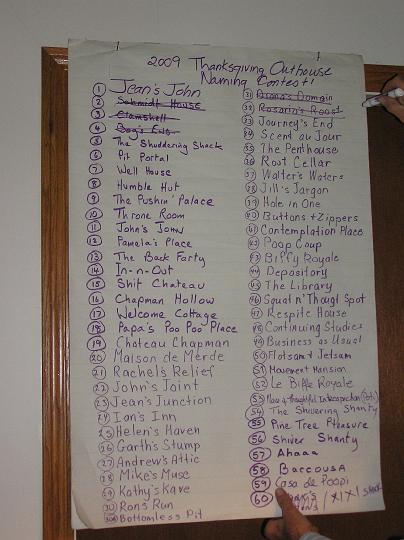 2009 Thanksgiving Outhouse
Naming Contest!
1 Jean's John
2 Schmidt House
3 Clamshell
4 Bag's End
5 The Shuddering Shack
6 Pit Portal
7 Well House
8 Humble Hut
9 The Pushin' Palace
10 Throne Room
11 John's John
12 Pamela's Place
13 The Back Forty
14 In-n-Out
15 Shit Chateau
16 Chapman Hollow
17 Welcome Cottage
18 Papa's Poo Poo Place
19 Chateau Chapman
20 Maison de Merde
21 Rachel's Relief
22 John's Joint
23 Jean's Junction
24 Ian's Inn
25 Helen's Haven
26 Garth's Stump
27 Andrew's Attic
28 Mike's Muse
29 Kathy's Kave
30 Ron's Run
Bottomless Pit
31 Diana's Domain
32 Rosario's Roost
33 Journey's End
34 Scent au Jour
35 The Penthouse
36 Root Cellar
37 Walter's Waters
38 Jill's Jargon
39 Hole in One
40 Buttons + Zippers
41 Contemplation Place
42 Poop Coup
43 Biffy Royale
44 Depository
45 The Library
46 Squat n' Thought Spot
47 Respite House
48 Continuing Studies
49 Business as Usual
50 Flotsam + Jetsam
51 Movement Mansion
52 Le Biffe Royale
53 Place of Thoughtful Introspection
54 The Shivering Shanty
55 Pine Tree Pleasure
56 Shiver Shanty
57 Ahaaa
58 Baccousa
59 Casa de Poopi
60